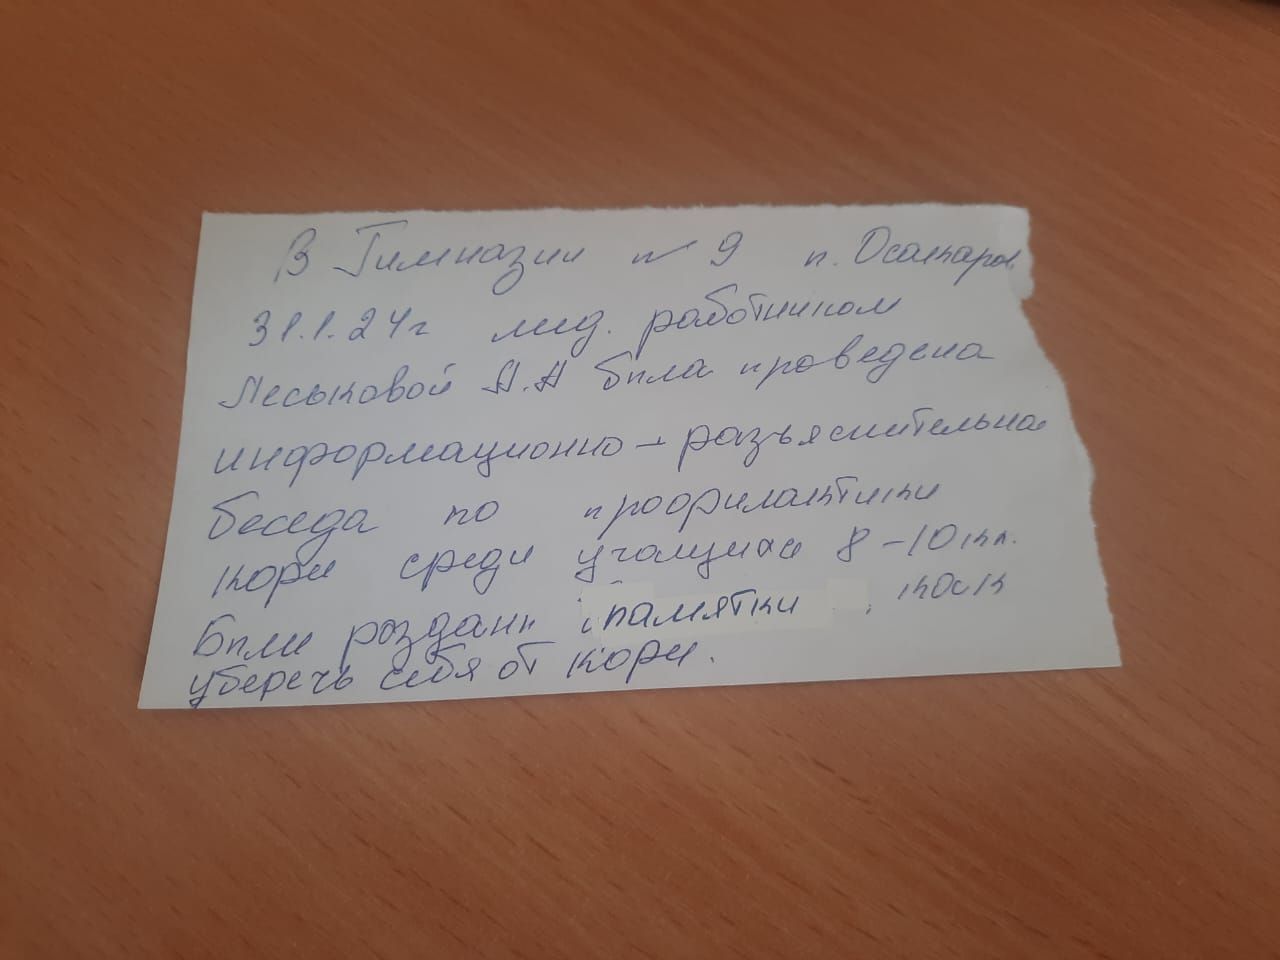 В Гимназии № 9 п. Осакаров
31.1.24г мед. работником
Леськовой А.А была проведена
информационно-разъяснительная
беседа по профилактики
кори среди учащихся 8-10 кл.
Были розданы памятки, как
уберечь себя от кори.